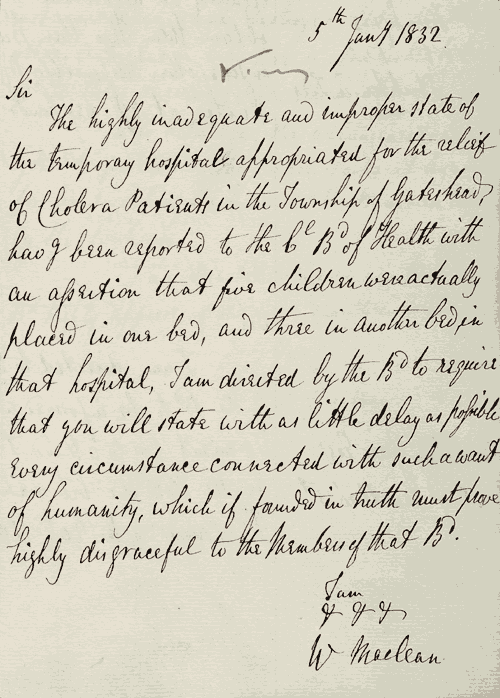 5th Jany 1832.
Sir
The highly inadequate and improper state of
the temporary hospital appropriated for the relief
of Cholera Patients in the Township of Gateshead,
havg been reported to the Cl Bd of Health with
an assertion that five children were actually
placed in one bed, and three in another bed in
that hospital, I am directed by the Bd to require
that you will state with as little delay as possible
every circumstance connected with such a want
of humanity, which if founded in truth must prove
highly disgraceful to the Members of that Bd.
I am
& & &
W Maclean